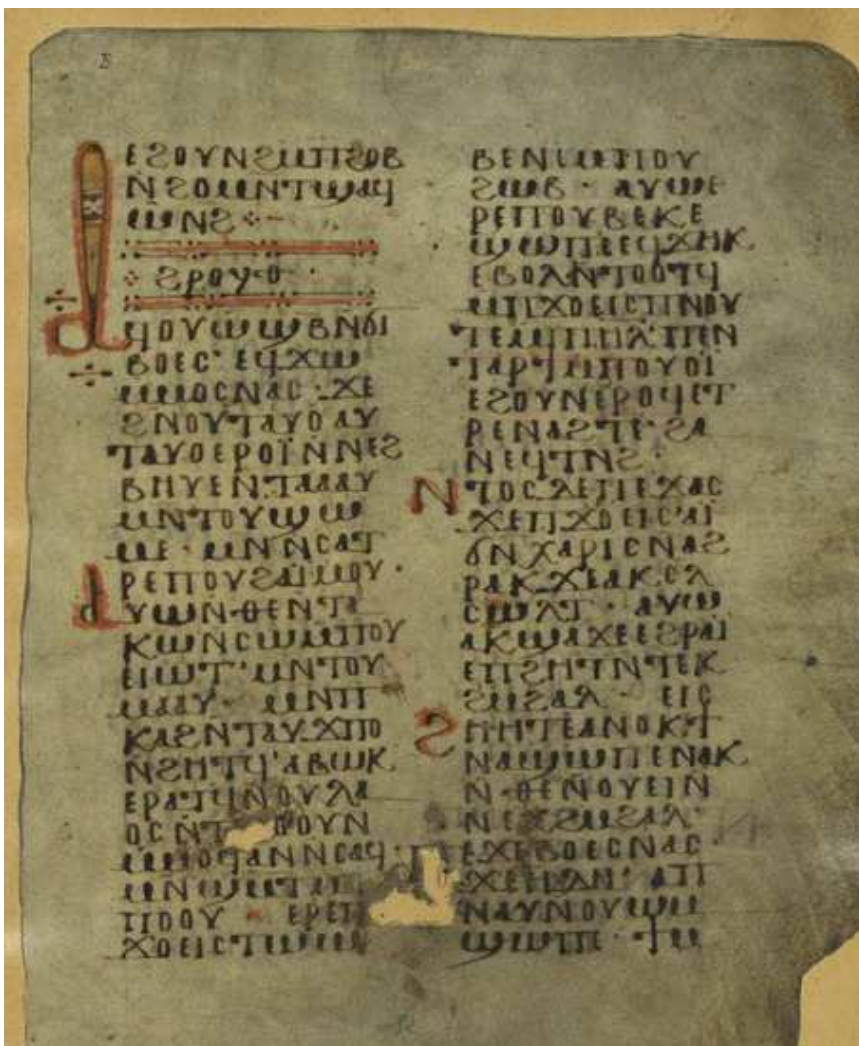 ⲉϩⲟⲩⲛϩⲙⲡϩⲟⲃ
ⲛ̄ϩⲟⲙⲛⲧϣⲁϥ
ⲙⲛϩ
ϩⲣⲟⲩⲑ
ⲁϥⲟⲩⲱϣⲃⲛϭⲓ
ⲃⲟⲉⲥ· ⲉϥϫⲱ
ⲙⲙⲟⲥⲛⲁⲥ· ϫⲉ
ϩⲛⲟⲩⲧⲁⲩⲟⲁⲩ
ⲧⲁⲩⲟⲉⲣⲟⲓ̈ⲛⲛⲉϩ
ⲃⲏⲩⲉⲛⲧⲁⲁⲁⲩ
ⲙⲛⲧⲟⲩϣⲱ
ⲙⲉ· ⲙⲛⲛⲥⲁⲧ
ⲣⲉⲡⲟⲩϩⲁⲓ̈ⲙⲟⲩ·
ⲁⲩⲱⲛ·ⲑⲉⲛⲧⲁ
ⲕⲱⲛⲥⲱⲙⲡⲟⲩ
ⲉⲓⲱⲧ· ⲙⲛⲧⲟⲩ
ⲙⲁⲁⲩ· ⲙⲛⲡ
ⲕⲁϩⲛⲧⲁⲩϫⲡⲟ
ⲛϩⲏⲧϥ· ⲁⲃⲱⲕ
ⲉⲣⲁⲧϥⲛⲟⲩⲗⲁ
ⲟⲥ ⲛⲧ ⲟⲟⲩⲛ
ⲙⲙⲟϥⲁⲛⲛⲥⲁϥ·
ⲙⲛ
ⲡⲟⲟⲩ· ⲉⲣⲉⲡ
ϫⲟⲉⲓⲥⲧⲱⲱ
ⲃⲉⲛⲙⲡⲟⲩ
ϩⲱⲃ· ⲁⲩⲱⲉ
ⲣⲉⲡⲟⲩⲃⲉⲕⲉ
ϣⲱⲡⲉⲉϥϫⲏⲕ
ⲉⲃⲟⲗⲛ̄ⲧⲟⲟⲧϥ
ⲙⲡϫⲟⲉⲓⲥⲡⲛⲟⲩ
ⲧⲉⲙⲡⲓⲏ̄ⲗ̄ⲡⲉⲛ
ⲧⲁⲣϯⲙⲡⲟⲩⲟⲓ̈
ⲉϩⲟⲩⲛⲉⲣⲟϥⲉⲧ
ⲣⲉⲛⲁϩⲧⲉ· ϩⲁ
ⲛⲉϥⲧⲛϩ·
ⲛⲧⲟⲥⲇⲉⲡⲉϫⲁⲥ
ϫⲉⲡϫⲟⲉⲓⲥ ⲁⲓ̈
ϭⲛⲭⲁⲣⲓⲥⲛⲁϩ
ⲣⲁⲕ ϫⲉⲁⲕⲥⲗ
ⲥⲱⲗⲧ· ⲁⲩⲱ
ⲁⲕϣⲁϫⲉⲉϩⲣⲁⲓ̈
ⲉⲡϩⲏⲧⲛⲧⲉⲕ
ϩⲙϩⲁⲗ· ⲉⲓⲥ
ϩⲏⲏⲧⲉⲁⲛⲟⲕϯ
ⲛⲁϣⲱⲡⲉⲛⲁⲕ
ⲛ·ⲑⲉⲛⲟⲩⲉⲓⲛ
ⲛⲉⲕϩⲙϩⲁⲗ·
ⲡⲉϫⲉⲃⲟⲉⲥⲛⲁⲥ·
ϫⲉⲏⲇⲏ· ⲁⲡ
ⲛⲁⲩⲛⲟⲩⲱⲙ
ϣⲱⲡⲉ·